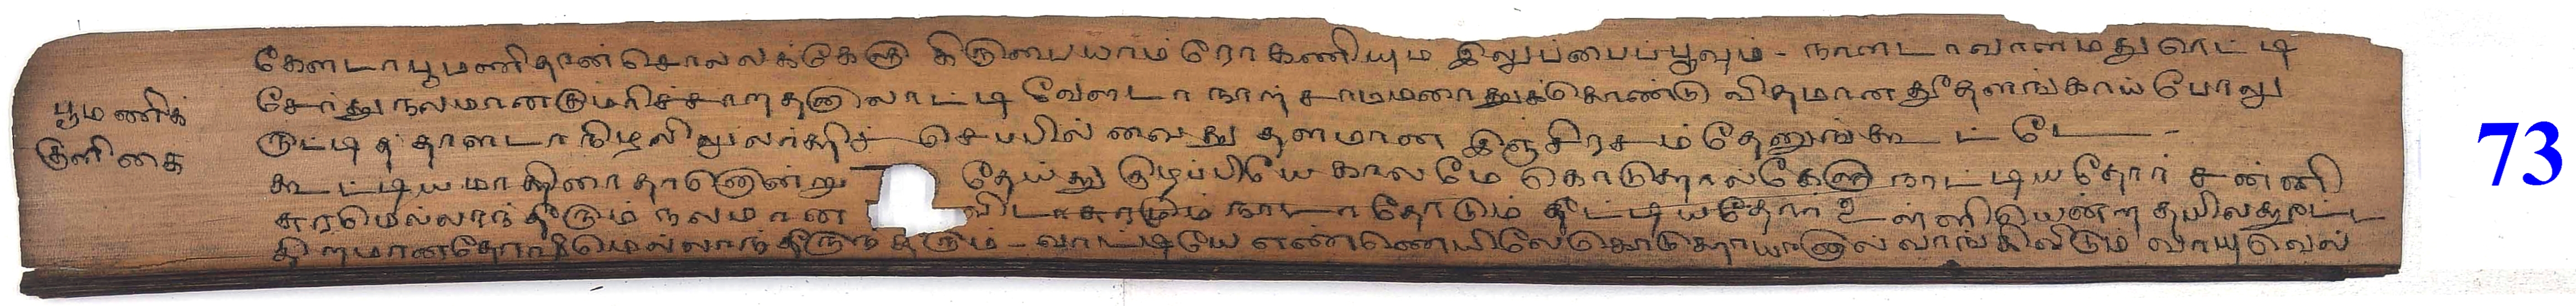 பூமணிக்
குளிகை
கேளடா பூமணிதான் சொலலக்கேளு கிருபையாம் ரோகணியும இலுப்பைப்பூவும் - நாளடாவாளமதுவெட்டி
சேர்த்து நலமான குமரிச்சாறதனுலாட்டி வேளடா நான் சாமமரைத்துக்கொண்டு விதமான தூதளங்காய் போலு
ருட்டித் தாளடா நிழலிலுலர்த்திச் செபயில் வைத்து தளமான இஞ்சிரசம் தேனுங்கூட்டே -
கூட்டியமாத்திரைதானொன்று தேய்த்து குழப்பியே காலமே கொடுத்தால்கேளு நாட்டியதோர் சன்னி
சுரமெல்லாந்தீரும் நலமான விடாசுரமும் நாடாதோடும் தீட்டியதோர் உள்ளி
தோஷமெல்லாந்தீருந் தீரும் - வாட்டியே எண்ணெயிலேகொடுத்தாயானால் வாங்கிவிடும் வாயுவெல்
73